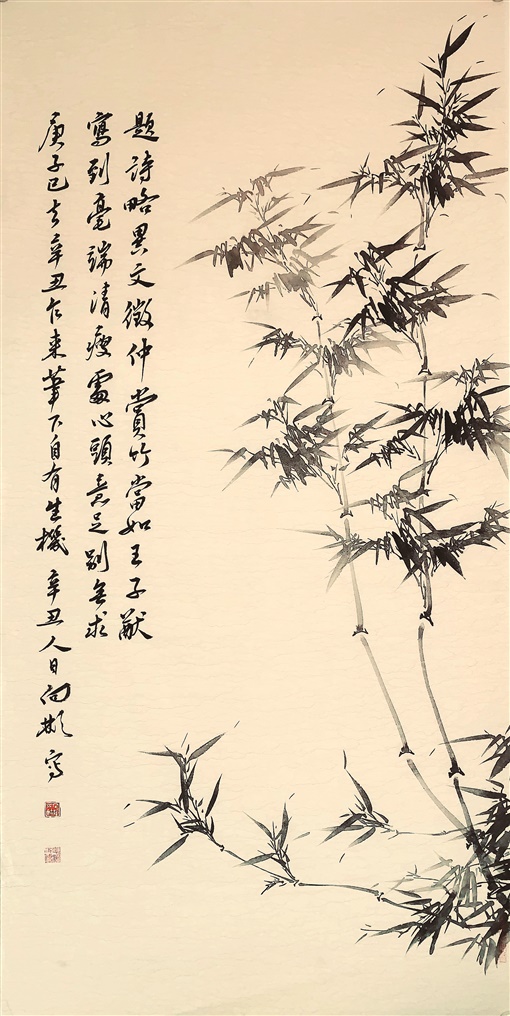 題詩略異文徵仲賞竹當如王子猷
寫到毫端清瘦處心頭意足別無求
庚子已去辛丑乍來筆下自有生機 辛丑人日向彬寫